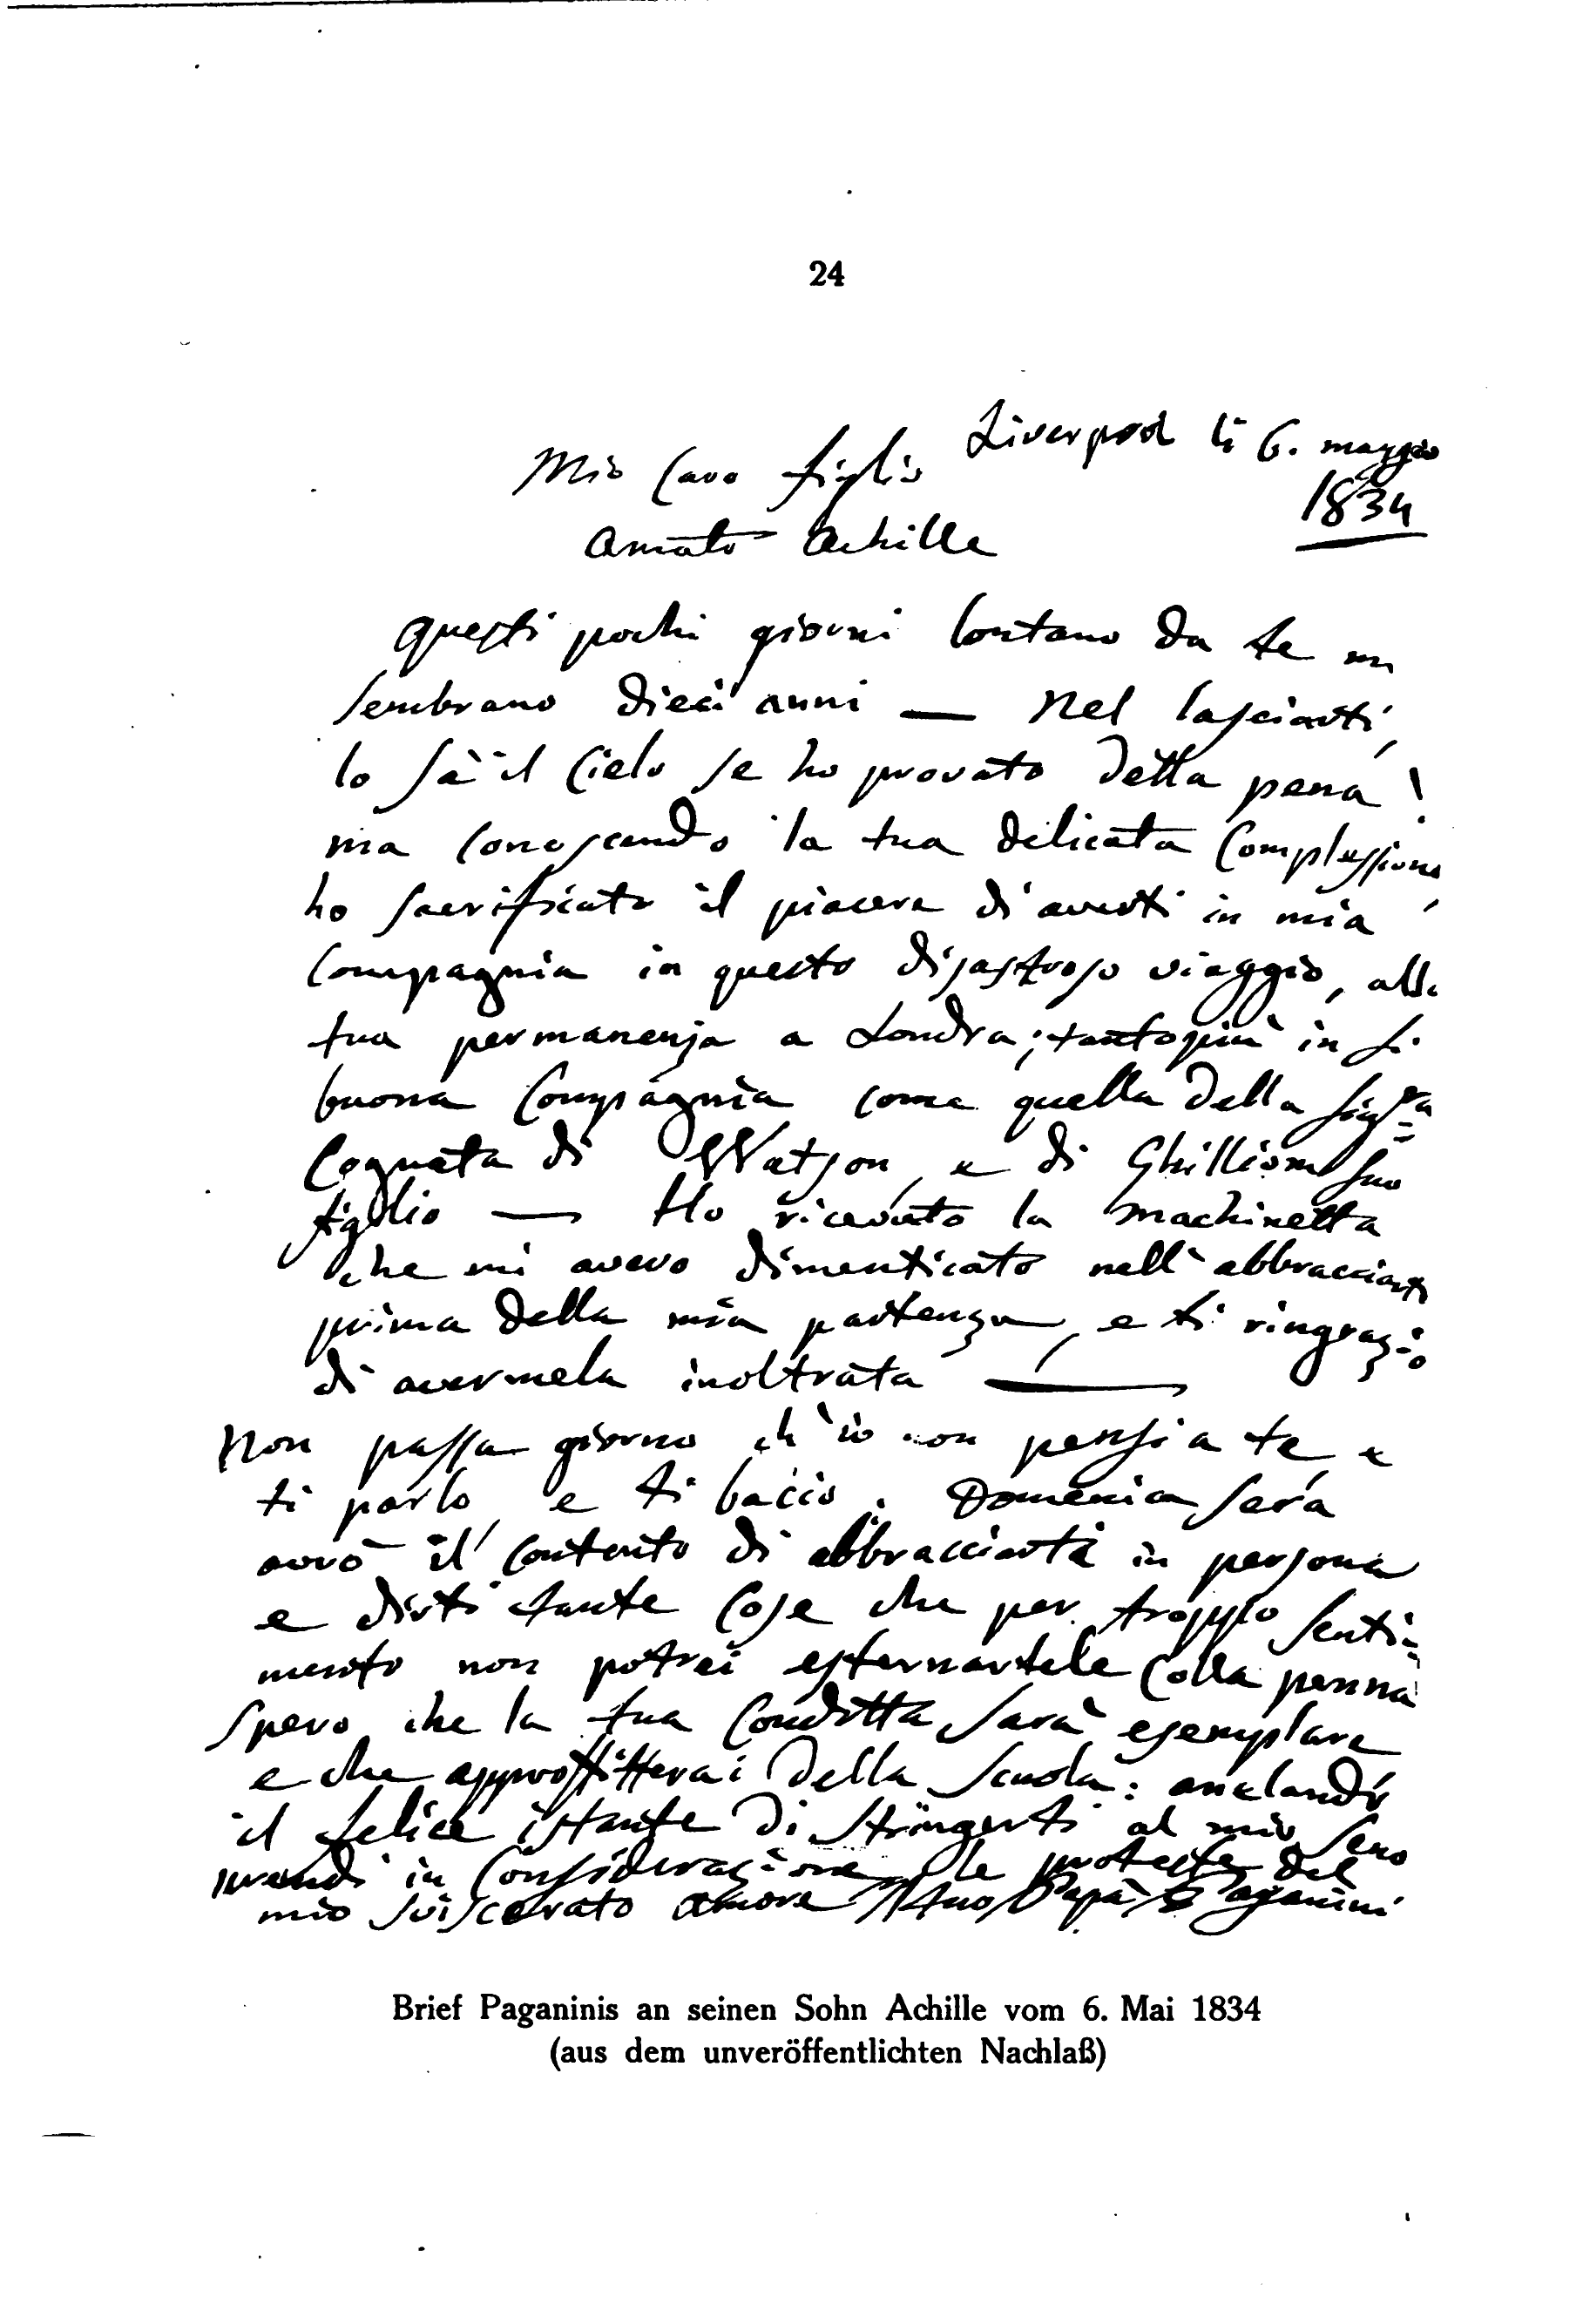 24
Liverpool li 6. maggio
1834
Mio Caro figlio
Amato Achille
Questi pochi giorni lontano da te mi
sembrano dieci anni — Nel lasciarti,
lo sà il Cielo se ho provato della pena!
ma conoscendo la tua delicata Complessione,
ho sacrificato il piacere di averti in mia
Compagnia in questo disastroso viaggio, alla
tua permanenza a Londra; tantopiù in sì
buona Compagnia come quella della Sigra
Cognata di Watson, e di Ghilliom suo
figlio — Ho ricevuto la machinetta
che mi avevo dimenticato nell'abbracciarti
prima della mia partenza, e ti ringrazio
di avermela inoltrata —
Non passa giorno ch'io non pensi a te, e
ti parlo, e ti baccio. Domenica sera
avrò il contento di abbracciarti in persona
e dirti tante Cose che per troppo senti-
mento non potrei esternartele Colla penna
Spero che la tua Condotta sarà esemplare
e che approffitterai della scuola: anelando
il felice istante di stringerti al mio seno
prendi in Considerazione le proteste del
mio sviscerato amore Il tuo Papà Paganini
Brief Paganinis an seinen Sohn Achille vom 6. Mai 1834
(aus dem unveröffentlichten Nachlaß)